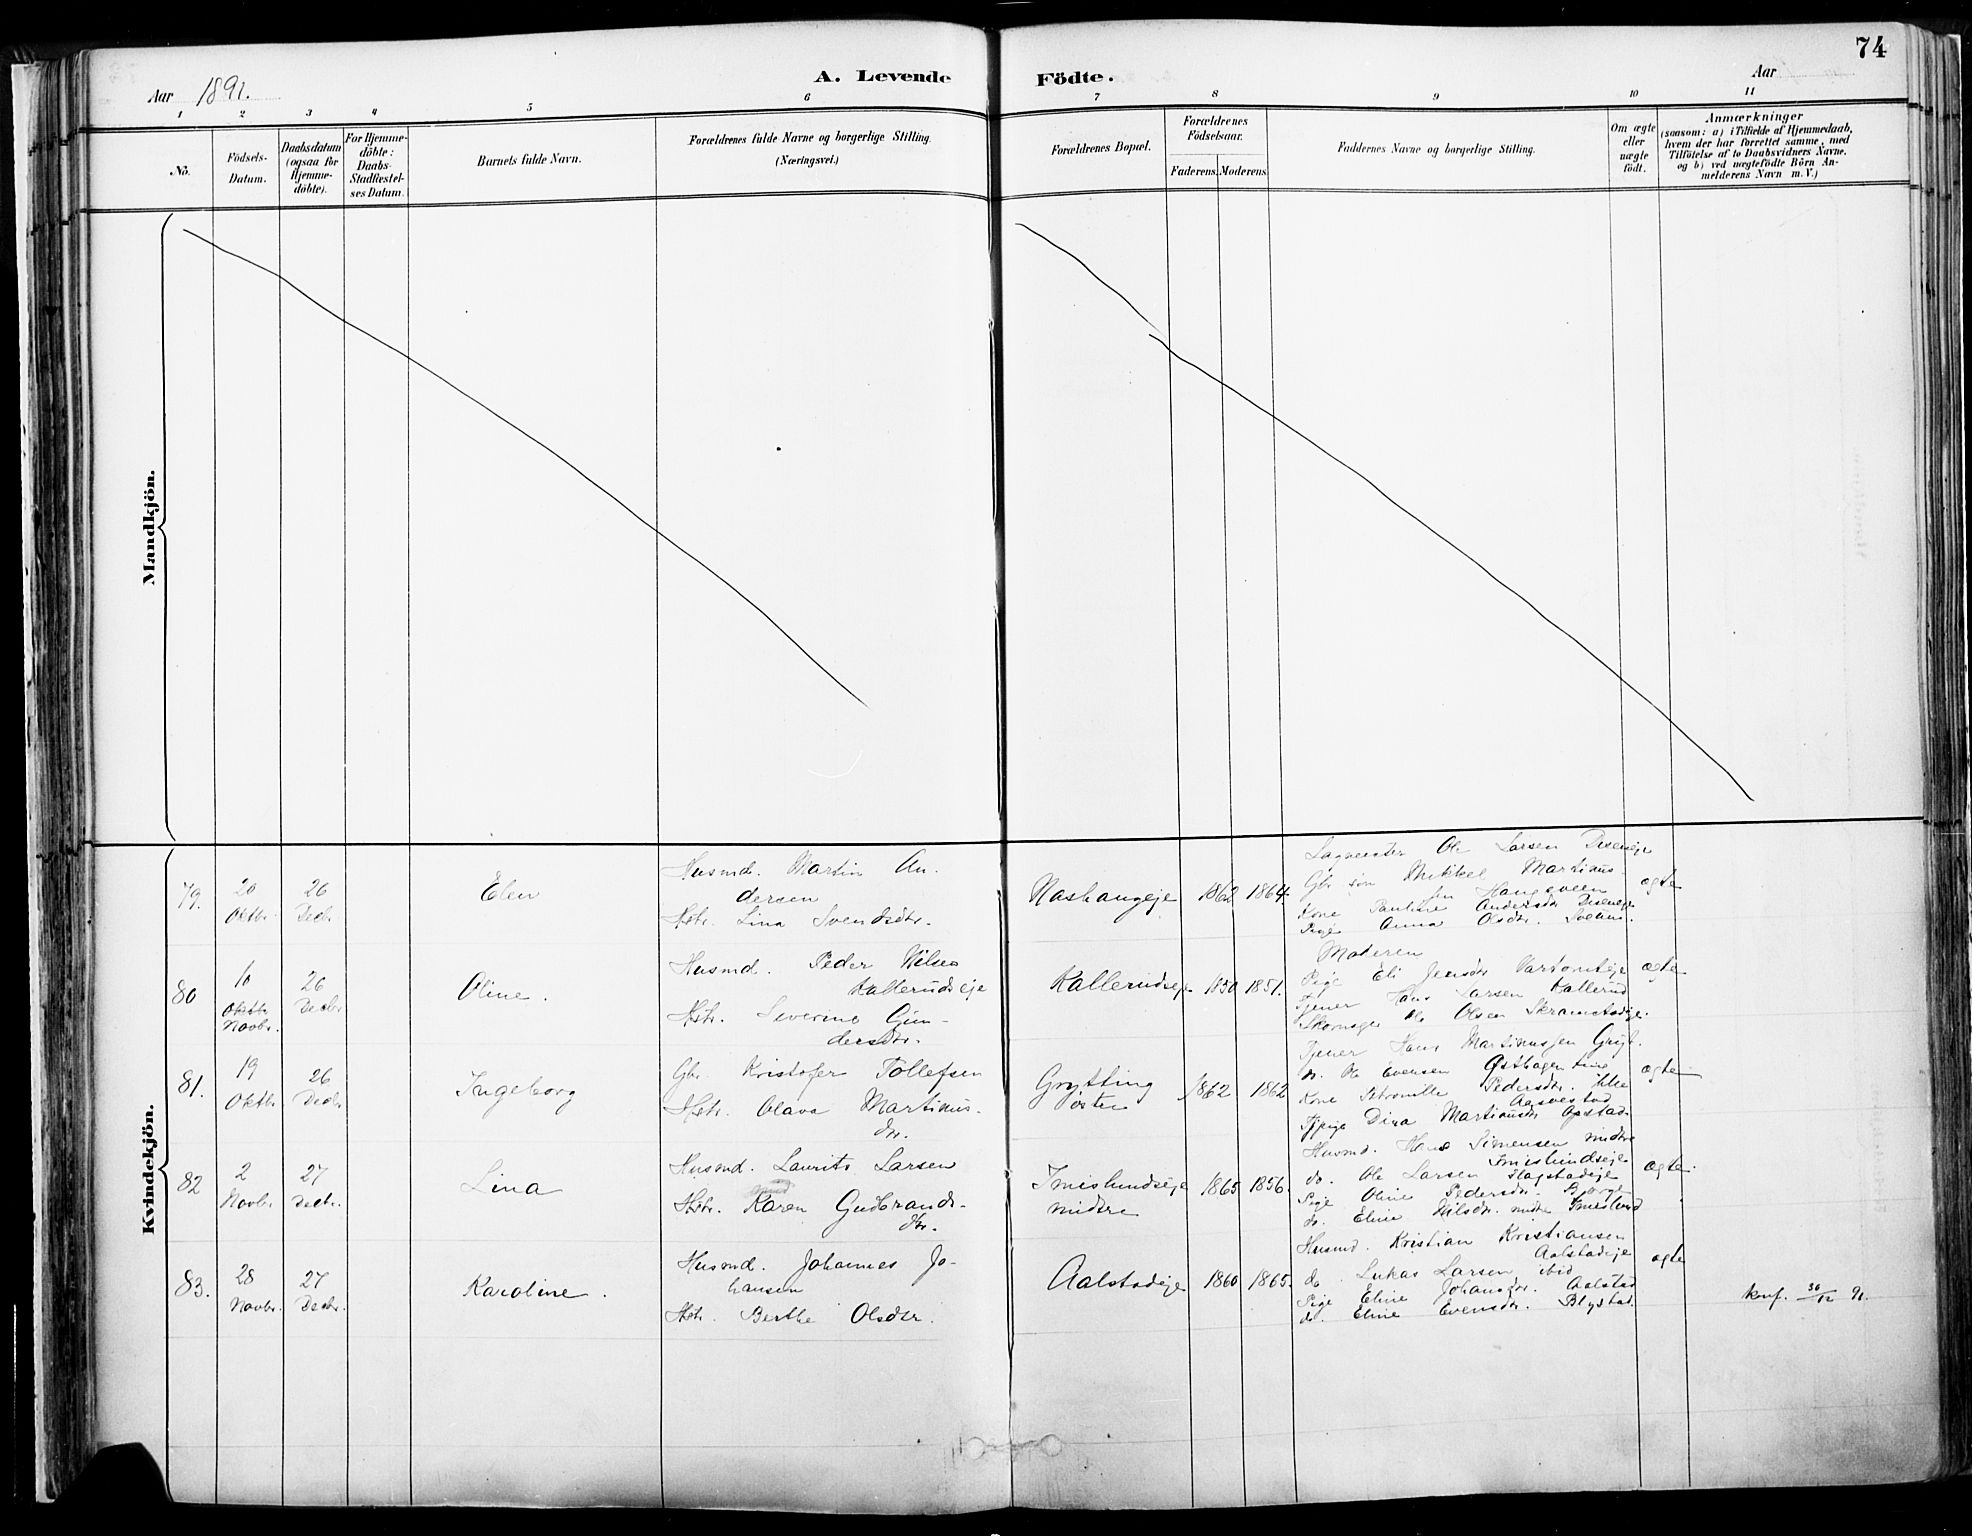 74
A. Levende Födte.
Aar 1891.
Aar
1 2 3 4 5 6 7 8 9 10 11
No.
Födsels-
Datum.
Daabsdatum
(ogsaa for
Hjemme-
döbte).
For Hjemme-
döbte:
Daabs-
Stadfæstel-
ses Datum.
Barnets fulde Navn.
Forældrenes fulde Navne og borgerlige Stilling.
(Næringsvei.)
Forældrenes Bopæl.
Forældrenes
Födselsaar.
Faderens. Moderens.
Faddernes Navne og borgerlige Stilling.
Om ægte
eller
uægte
födt.
Anmærkninger
(saasom: a) i Tilfælde af Hjemmedaab,
hvem der har forrettet samme, med
Tilföielse af to Daabsvidners Navne,
og b) ved uægtefödte Börn An-
melderens Navn m. V.)
Mandkjön.
Kvindekjön.
79.
20
Oktbr.
26
Decbr.
Elen
Husmd. Martin An-
dersen
Hstr. Lina Svendsdtr.
1862 1864.
Ole Larsen Diseneje
Gbr. søn Mikkel Martinus-
sen
Kone Pauline Andersdtr Diseneje
Pige Anna Olsdtr.
ægte
80
16
Oktbr.
Novbr.
26
Decbr.
Oline.
Husmd. Peder Nilsen
Kallerudseje
Hstr. Severine Gun-
dersdtr.
Kallerudseje
1850 1851.
Moderen
Pige Eli Jensdtr
Tjener Hans Larsen Kallerud
Skomager Ole Olsen Skramstadeje.
ægte
81.
19
Oktbr.
26
Decbr.
Ingeborg
Gbr. Kristofer Tollefsen
Hstr. Olava Martinus-
dtr.
Grytting
østre
1862 1862
Tjener Hans Martinussen Gryt.
do. Ole Evensen Østhagen
Kone Petronille Pedersdtr.
Dina Martinsdtr Opstad.
ægte
82
2
Novbr.
27
Decbr.
Lina
Husmd. Laurits Larsen
Hstr. Karen Gudbrands-
dtr.
Imislundseje
midtre
1865 1856.
Husmd. Hans Simensen midtre
Imislundseje
do. Ole Larsen Hagstadeje
Pige Oline Pedersdtr.
do. Eline Nilsdtr. midtre Imislund
ægte.
83.
28
Novbr.
27
Decbr.
Karoline.
Husmd. Johannes Jo-
hansen
Hstr. Berthe Olsdtr.
Aalstadeje
1860 1865.
Husmd. Kristian Kristiansen
Aalstadeje
do. Lukas Larsen ibid
Pige Eline Johansdtr. Aalstad
do. Eline Evensdtr. Blystad.
ægte
konf. 30/12 91.